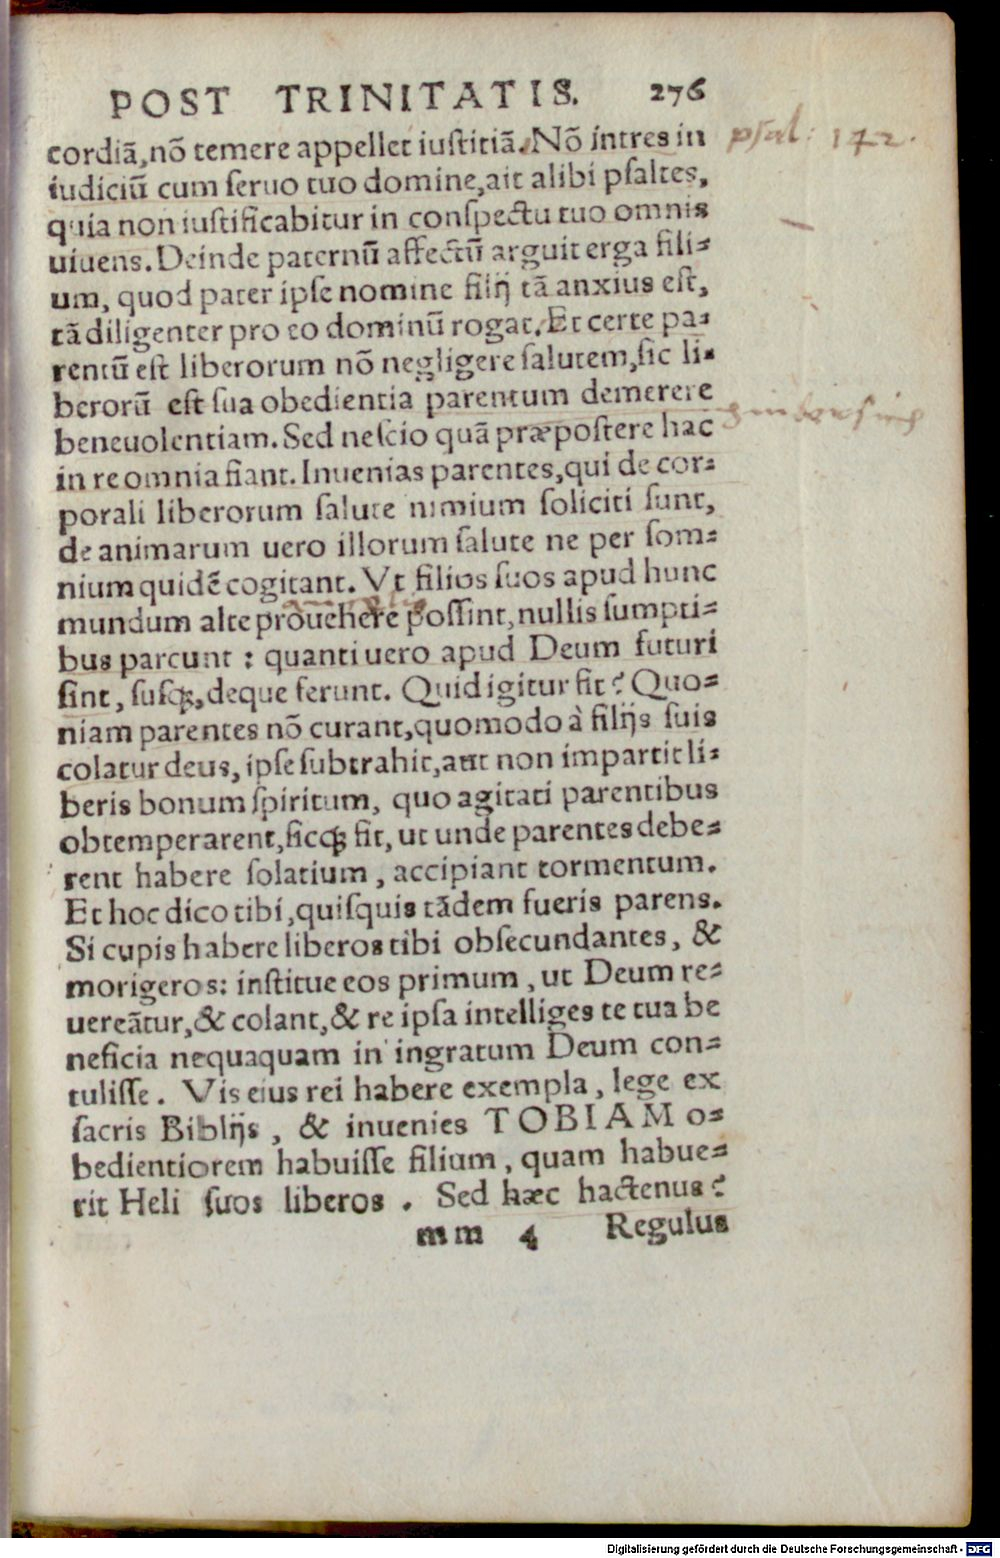 POST TRINITATIS. 276
cordiã, nõ temere appellet iuſtitiã. Nõ intres in
psal: 142.
iudiciũ cum ſeruo tuo domine, ait alibi pſaltes,
quia non iuſtificabitur in conſpectu tuo omnis
uiuens. Deinde paternũ affectũ arguit erga fili=
um, quod pater ipſe nomine filij tã anxius eſt,
tã diligenter pro eo dominũ rogat. Et certe pa=
rentũ eſt liberorum nõ negligere ſalutem, ſic li=
berorũ eſt ſua obedientia parentum demerere
beneuolentiam. Sed neſcio quã præpoſtere hac
in re omnia fiant. Inuenias parentes, qui de cor=
porali liberorum ſalute nimium ſoliciti ſunt,
de animarum uero illorum ſalute ne per ſom=
nium quidẽ cogitant. Vt filios ſuos apud hunc
mundum alte prouehere poſſint, nullis ſumpti=
bus parcunt: quanti uero apud Deum futuri
ſint, ſuſꝗ, deque ferunt. Quid igitur fit? Quo=
niam parentes nõ curant, quomodo à filijs ſuis
colatur deus, ipſe ſubtrahit, aut non impartit li=
beris bonum ſpiritum, quo agitati parentibus
obtemperarent, ſicꝗ fit, ut unde parentes debe=
rent habere ſolatium, accipiant tormentum.
Et hoc dico tibi, quiſquis tãdem fueris parens.
Si cupis habere liberos tibi obſecundantes, &
morigeros: inſtitue eos primum, ut Deum re=
uereãtur, & colant, & re ipſa intelliges te tua be
neficia nequaquam in ingratum Deum con=
tuliſſe. Vis eius rei habere exempla, lege ex
ſacris Biblijs, & inuenies TOBIAM o=
bedientiorem habuiſſe filium, quam habue=
rit Heli ſuos liberos. Sed hæc hactenus?
mm 4 Regulus
Digitalisierung gefördert durch die Deutsche Forschungsgemeinschaft - DFG